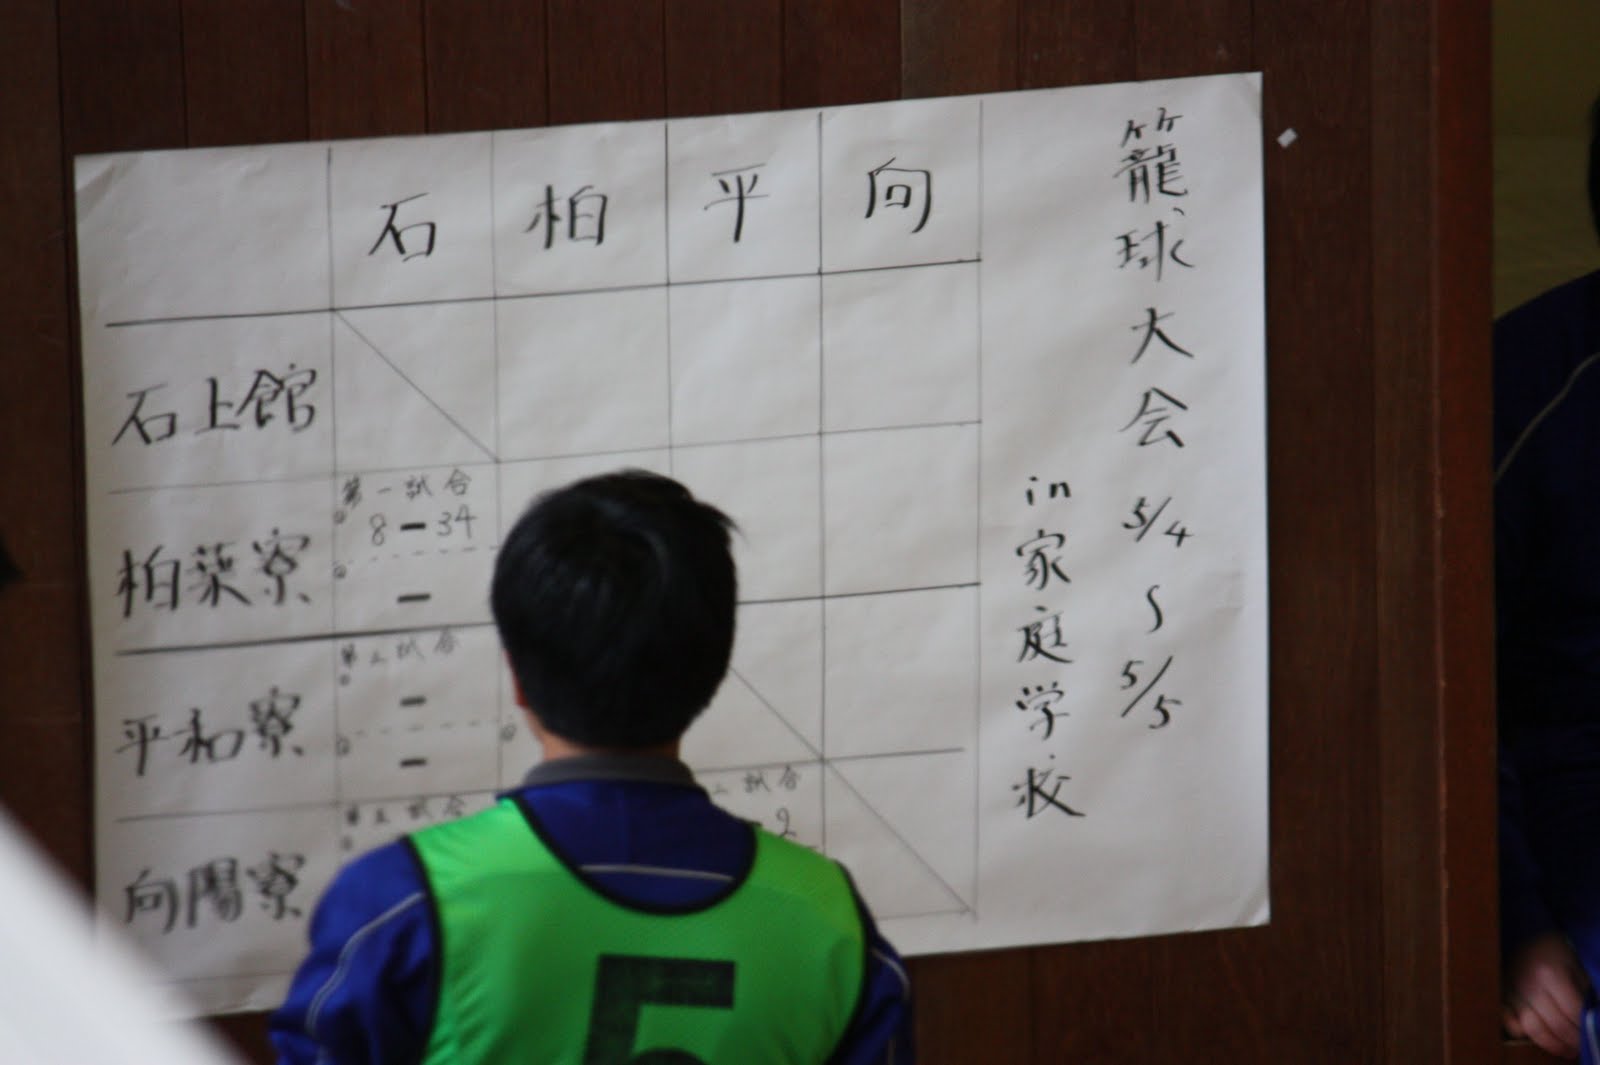 籠球大会 5/4〜5/5
in家庭学校
石 柏 平 向
石上館
柏葉寮
第一試合
8 - 34
-
平和寮
第二試合
-
-
向陽寮
第三試合
試合
- 2
5